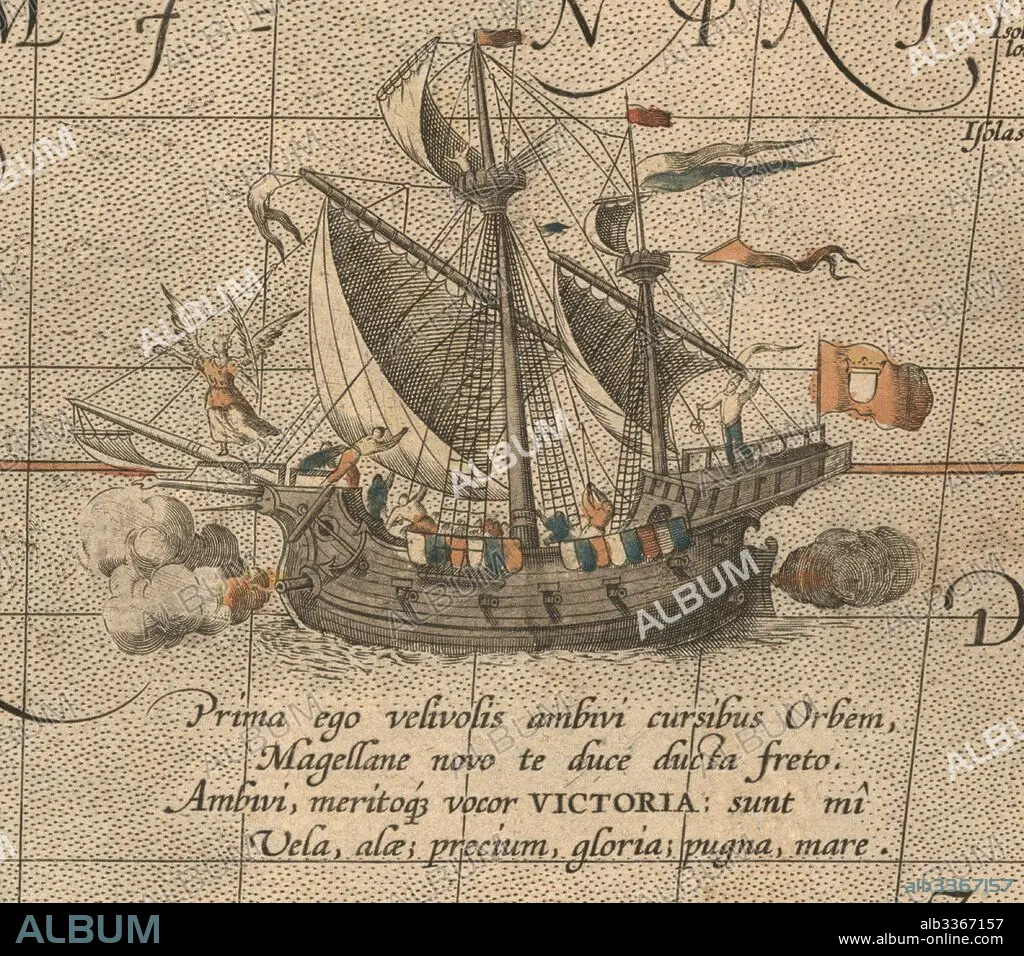 Isolas
Prima ego velivolis ambivi cursibus Orbem,
Magellane novo te duce ducta freto.
Ambivi, meritoqꝫ vocor VICTORIA: sunt mî
Vela, alæ; precium, gloria; pugna, mare.
alb3367157
ALBUM
alb3367157
www.album-online.com